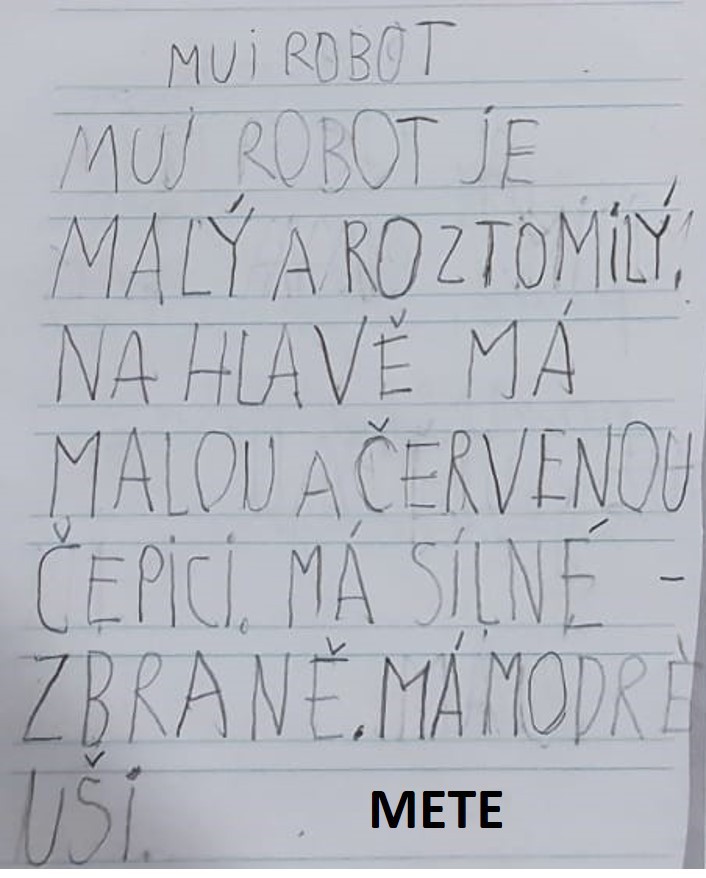 MUi ROBOT
MUJ ROBOT JE
MALÝ A ROZTOMiLÝ.
NA HLAVĚ MÁ
MALOU A ČERVENOU
ČEPiCi. MÁ SÍLNÉ -
ZBRANĚ. MÁ MODRÉ
UŠi.
METE